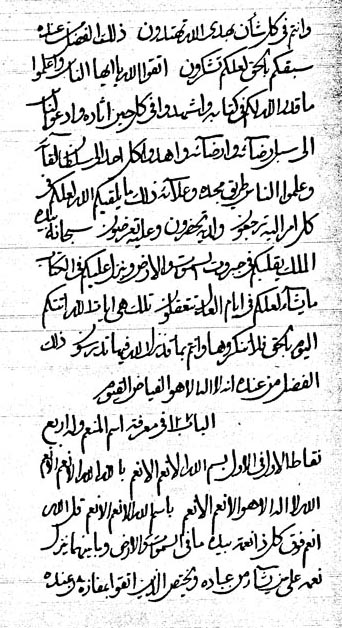 وانتم في كل شأن بهدى الله تهتدون ذلك الفضل عنده
سبقكم بالحق لعلكم تشكرون اتقوا الله يا ايها الناس واعلموا
ما قدر الله لكم في كتابه واشهدوا في كل حين اثاره وادعوا
الى سبل رضائه وارضائه واهدوا كل احد الى
وعلموا الناس طريق مجده وعلائه ذلك ما يلقيكم الله لعلكم في
كل امر اليه ترجعون واليه وعليه تعرضون سبحانه بيده
الملك يقلبكم في جبروت السموات والارض وينزل عليكم في الكتاب
ما يشاء لعلكم في ايام الله تتعقلون تلك هي ايات الله اتتكم
اليوم بالحق فلا تنكروها وانتم بما قدر الله فيها تذكرون ذلك
الفضل من عنده انه لا اله الا هو الفياض القيوم
الباب في معرفة اسم المنعم وله اربع
نقاط الاول في الاول بسم الله الانعم الانعم بالله الله الانعم الانعم
الله لا اله الا هو الانعم الانعم باسم الله الانعم الانعم قل الله
انعم فوق كل ذا نعمة بيده ما في السموات والارض وما بينهما ينزل
نعمه على من يشاء من عباده ويختص الذين اتقوا بمفازة وعنده